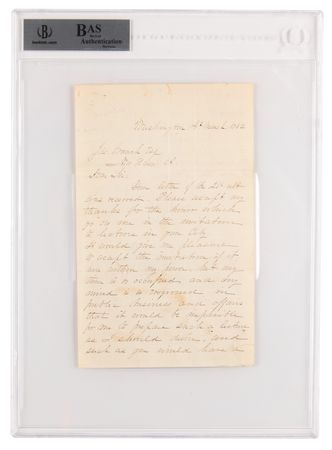 BAS
Beckett
Authentication
Services
Washington 
Dear Sir:
Your letter of the 20 ult
was received. Please accept my
thanks for the honor which
you do me in the invitation
to lecture in your City
It would give me pleasure
to accept the invitation if it
were within my power. But my
time is so occupied and my
mind is so engrossed in
public business and affairs
that it would be impossible
for me to prepare such a lecture
as I should desire, and
such as you would have a